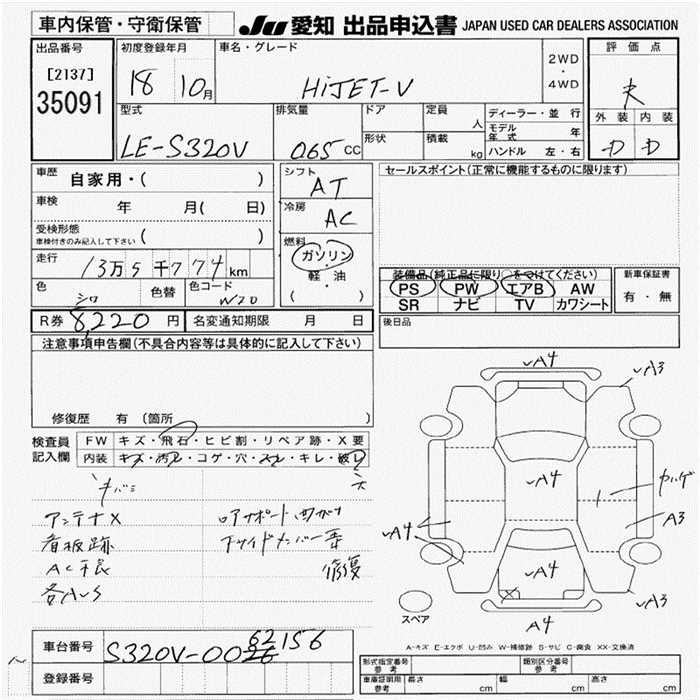 車内保管・守衛保管
JU 愛知 出品申込書 JAPAN USED CAR DEALERS ASSOCIATION
出品番号
[2137]
35091
初度登録年月
18 10月
車名・グレード
HiJET-V
2WD
・
4WD
評価点
外装 内装
D D
型式
LE-S320V
排気量
065 CC
ドア
形状
定員
人
積載
kg
ディーラー・並行
モデル年式 年
ハンドル 左・右
車歴 自家用・( )
車検 年 月( 日)
受検形態
車検付きのみ記入して下さい ( )
走行 13万5千774km
色 シロ 色替 色コード W20
シフト
AT
冷房
AC
燃料
ガソリン
・
軽油
( )
セールスポイント(正常に機能するものに限ります)
装備品(純正品に限り○をつけてください)
PS PW エアB AW
SR ナビ TV カワシート
新車保証書
有・無
R券 8,220円 名変通知期限 月 日
後日品
注意事項申告欄(不具合内容等は具体的に記入して下さい)
修復歴 有(箇所
検査員記入欄
FW キズ・飛石・ヒビ割・リペア跡・X要
内装 キズ・汚レ・コゲ・穴・スレ・キレ・破レ
キバミ
アンテナX
看板跡
AC手長
各AUS
コアサポート曲がり
下サイドメンバー
修復
A4
A3
A4
カハゲ
A4
A3
A4
A3
A4
スペア
A-キズ E-エクボ U-凹み W-補修跡 S-サビ C-腐食 XX-交換済
車台番号 S320V-0062156
登録番号
形式指定番号 参考
類別区分番号 参考
車庫証明用 参考
長さ cm
幅 cm
高さ cm